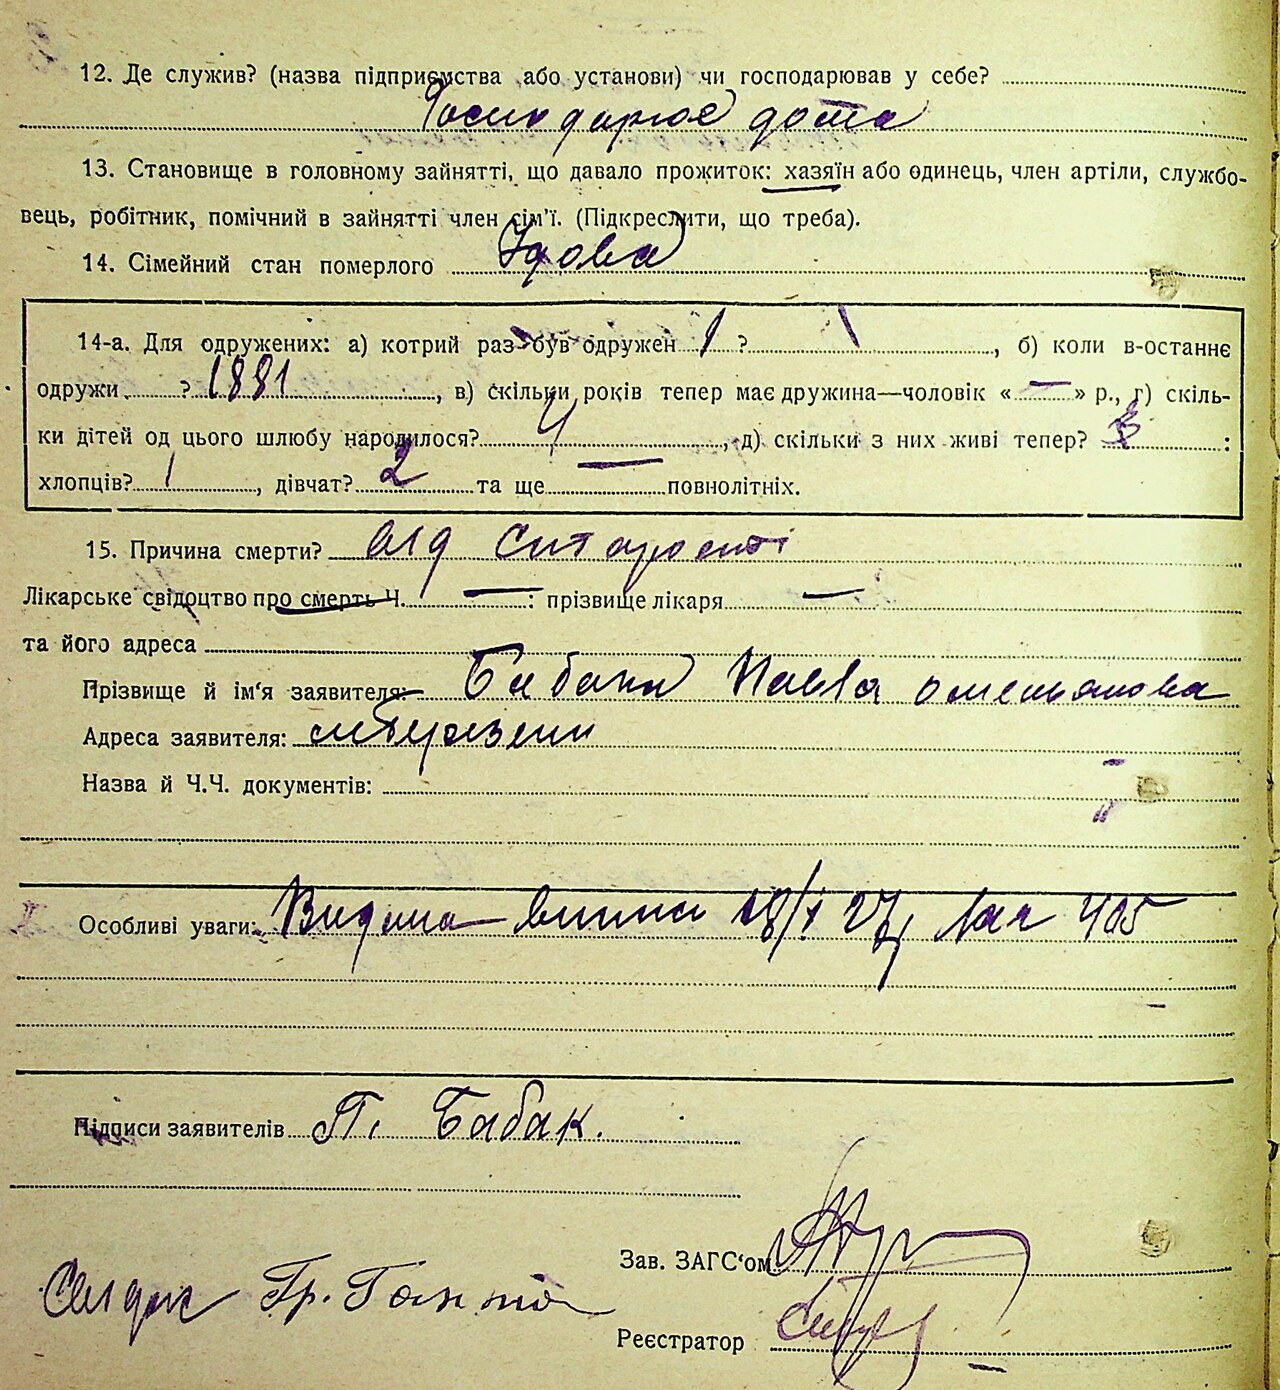 12. Де служив? (назва підприємства або установи) чи господарював у себе?
Господарює дома
13. Становище в головному зайнятті, що давало прожиток: хазяїн або одинець, член артілі, службо-
вець, робітник, помічний в зайнятті член сім'ї. (Підкреслити, що треба).
14. Сімейний стан померлого Удова
14-а. Для одружених: а) котрий раз був одружен 1 ?, б) коли в-останнє
одружи ? 1881, в) скільки років тепер має дружина—чоловік « — » р., г) скіль-
ки дітей од цього шлюбу народилося? 4, д) скільки з них живі тепер? 3 :
хлопців? 1, дівчат? 2 та ще — повнолітніх.
15. Причина смерти? від старости
Лікарське свідоцтво про смерть Ч. — : прізвище лікаря —
та його адреса
Прізвище й ім'я заявителя: Бабака Павла
Адреса заявителя:
Назва й Ч.Ч. документів:
Особливі уваги: Видана 27 405
Підписи заявителів П. Бабак.
Зав. ЗАГС'ом
Гр.
Реєстратор